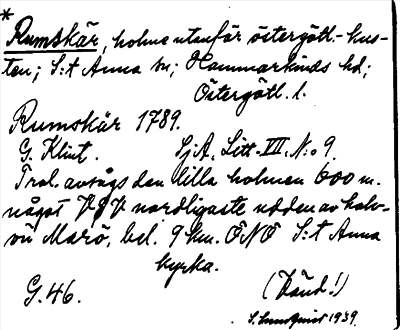 *
Rumskär, holme utanför östergötl.-kus-
ten; S:t Anna sn; Hammarkinds hd;
Östergötl. l.
Rumskär 1789.
G. Klint. Sj.A. Litt. VII. N:o 9.
Trol. avsågs den lilla holmen 600 m.
något V.S.V. nordligaste udden av halv-
ön Marö, bel. 9 km. ÖNÖ S:t Anna
kyrka.
G. 46. (Känd!)
S. Lundquist 1939.